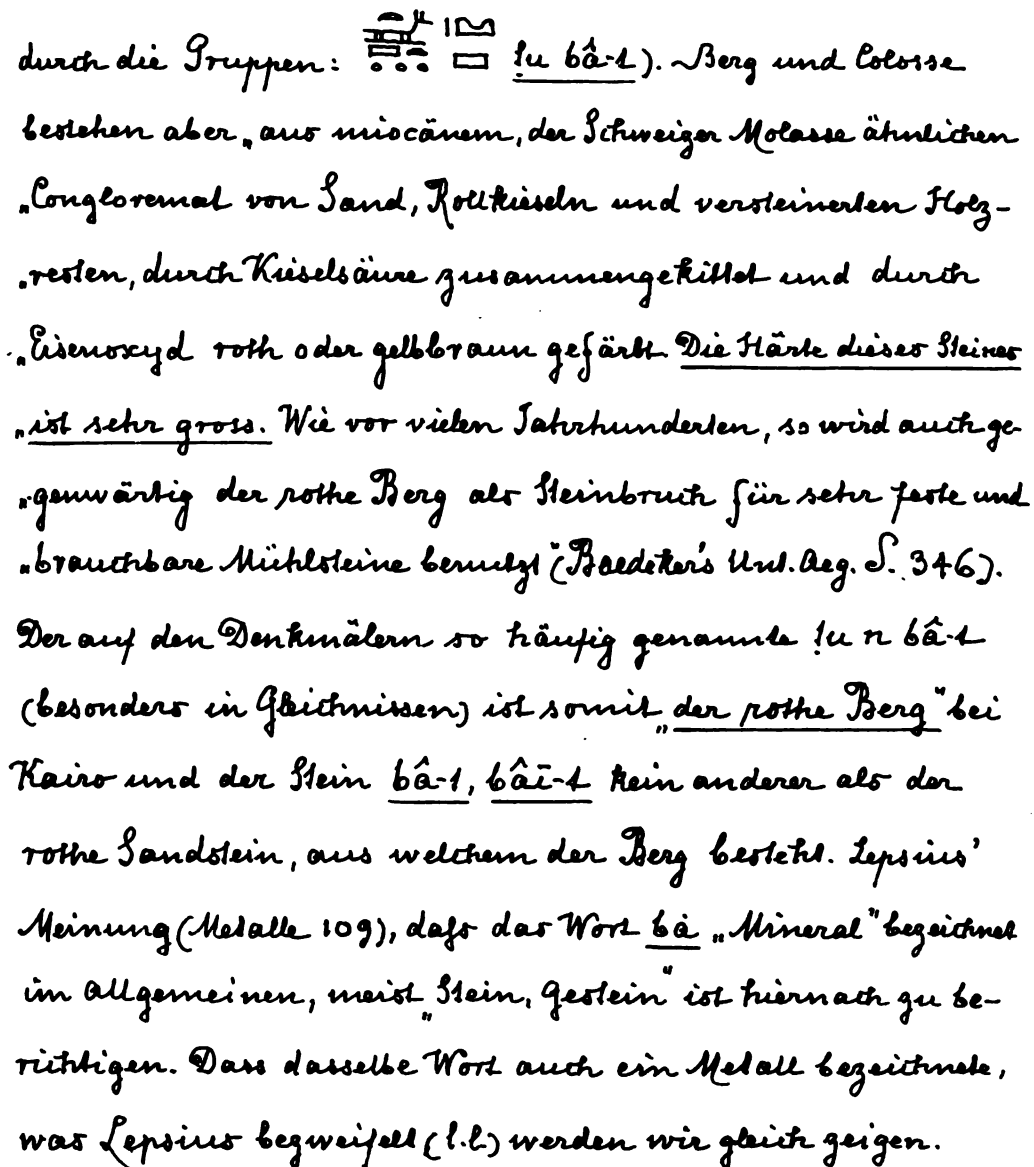 durch die Gruppen: ḫu bâ-t). Berg und Colosse
bestehen aber „aus miocänem, der Schweizer Molasse ähnlichen
„Congloremat von Sand, Rollkieseln und versteinerten Holz-
„resten, durch Kieselsäure zusammengekittet und durch
„Eisenoxyd roth oder gelbbraun gefärbt. Die Härte dieses Steines
„ist sehr gross. Wie vor vielen Jahrhunderten, so wird auch ge-
„genwärtig der rothe Berg als Steinbruch für sehr feste und
„brauchbare Mühlsteine benutzt" (Baedeker's Unt. Aeg. S. 346).
Der auf den Denkmälern so häufig genannte ḫu n bâ-t
(besonders in Gleichnissen) ist somit „der rothe Berg" bei
Kairo und der Stein bâ-t, bâī-t kein anderer als der
rothe Sandstein, aus welchem der Berg besteht. Lepsius'
Meinung (Metalle 109), dafs das Wort bà „Mineral" bezeichnet
im allgemeinen, meist „Stein, Gestein" ist hiernach zu be-
richtigen. Dass dasselbe Wort auch ein Metall bezeichnete,
was Lepsius bezweifelt (l.l.) werden wir gleich zeigen.